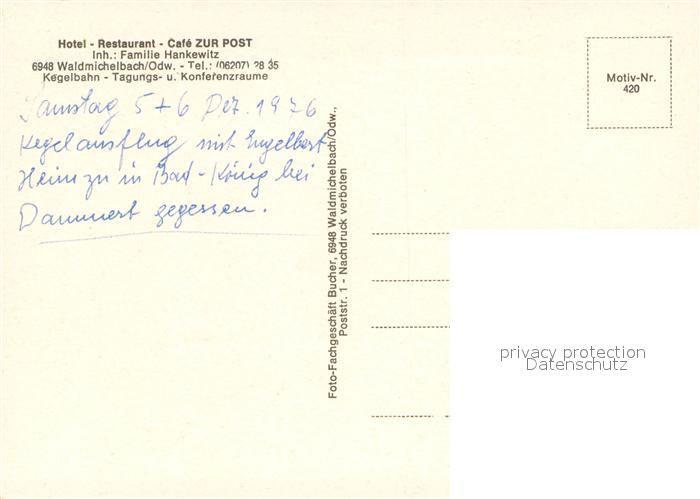 Hotel - Restaurant - Café ZUR POST
Inh.: Familie Hankewitz
6948 Waldmichelbach/Odw. - Tel.: (06207) 28 35
Kegelbahn - Tagungs- u. Konferenzräume
Samstag 5+6 Dez. 1976
Kegelausflug mit Engelbert
Heimzu in Bad-König bei
Dammert gegessen.
Foto-Fachgeschäft Bucher, 6948 Waldmichelbach/Odw.,
Poststr. 1 - Nachdruck verboten
Motiv-Nr.
420
privacy protection
Datenschutz